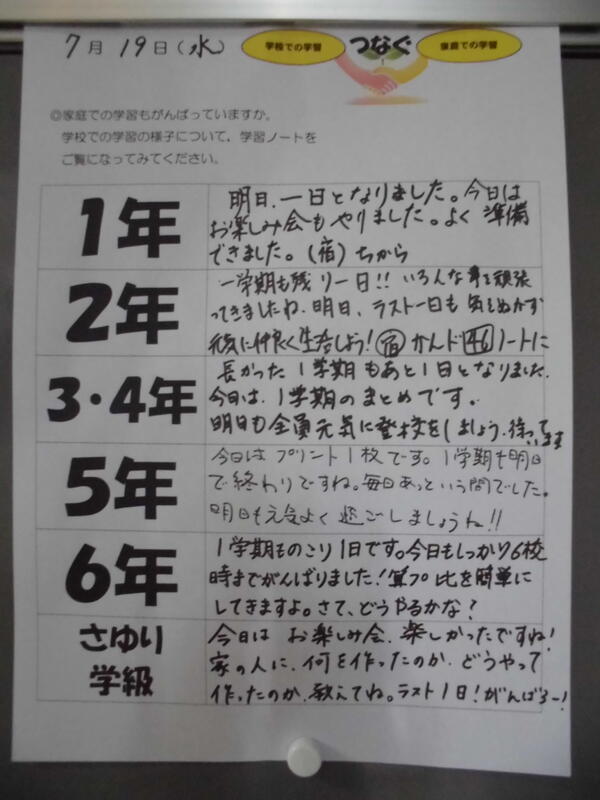 7月19日(水)
学校での学習
つなぐ
家庭での学習
◎家庭での学習もがんばっていますか。
学校での学習の様子について、学習ノートを
ご覧になってみてください。
1年
明日、一日となりました。今日は
お楽しみ会もやりました。よく準備
できました。(宿)ちから
2年
一学期も残り一日!!いろんな事を頑張
ってきましたね。明日、ラスト一日も気をぬかず
元気に仲良く生活しよう!宿かんド46ノートに
3・4年
長かった1学期もあと1日となりました。
今日は、1学期のまとめです。
明日も全員元気に登校をしましょう。待って
います
5年
今日はプリント1枚です。1学期も明日
で終わりですね。毎日あっという間でした。
明日も元気よく過ごしましょうね!!
6年
1学期ものこり1日です。今日もしっかり6校
時までがんばりました!算プ比を簡単に
してきますよ。さて、どうやるかな?
さゆり
学級
今日はお楽しみ会、楽しかったですね!
家の人に、何を作ったのか、どうやって
作ったのか、教えてね。ラスト1日!がんばろー!